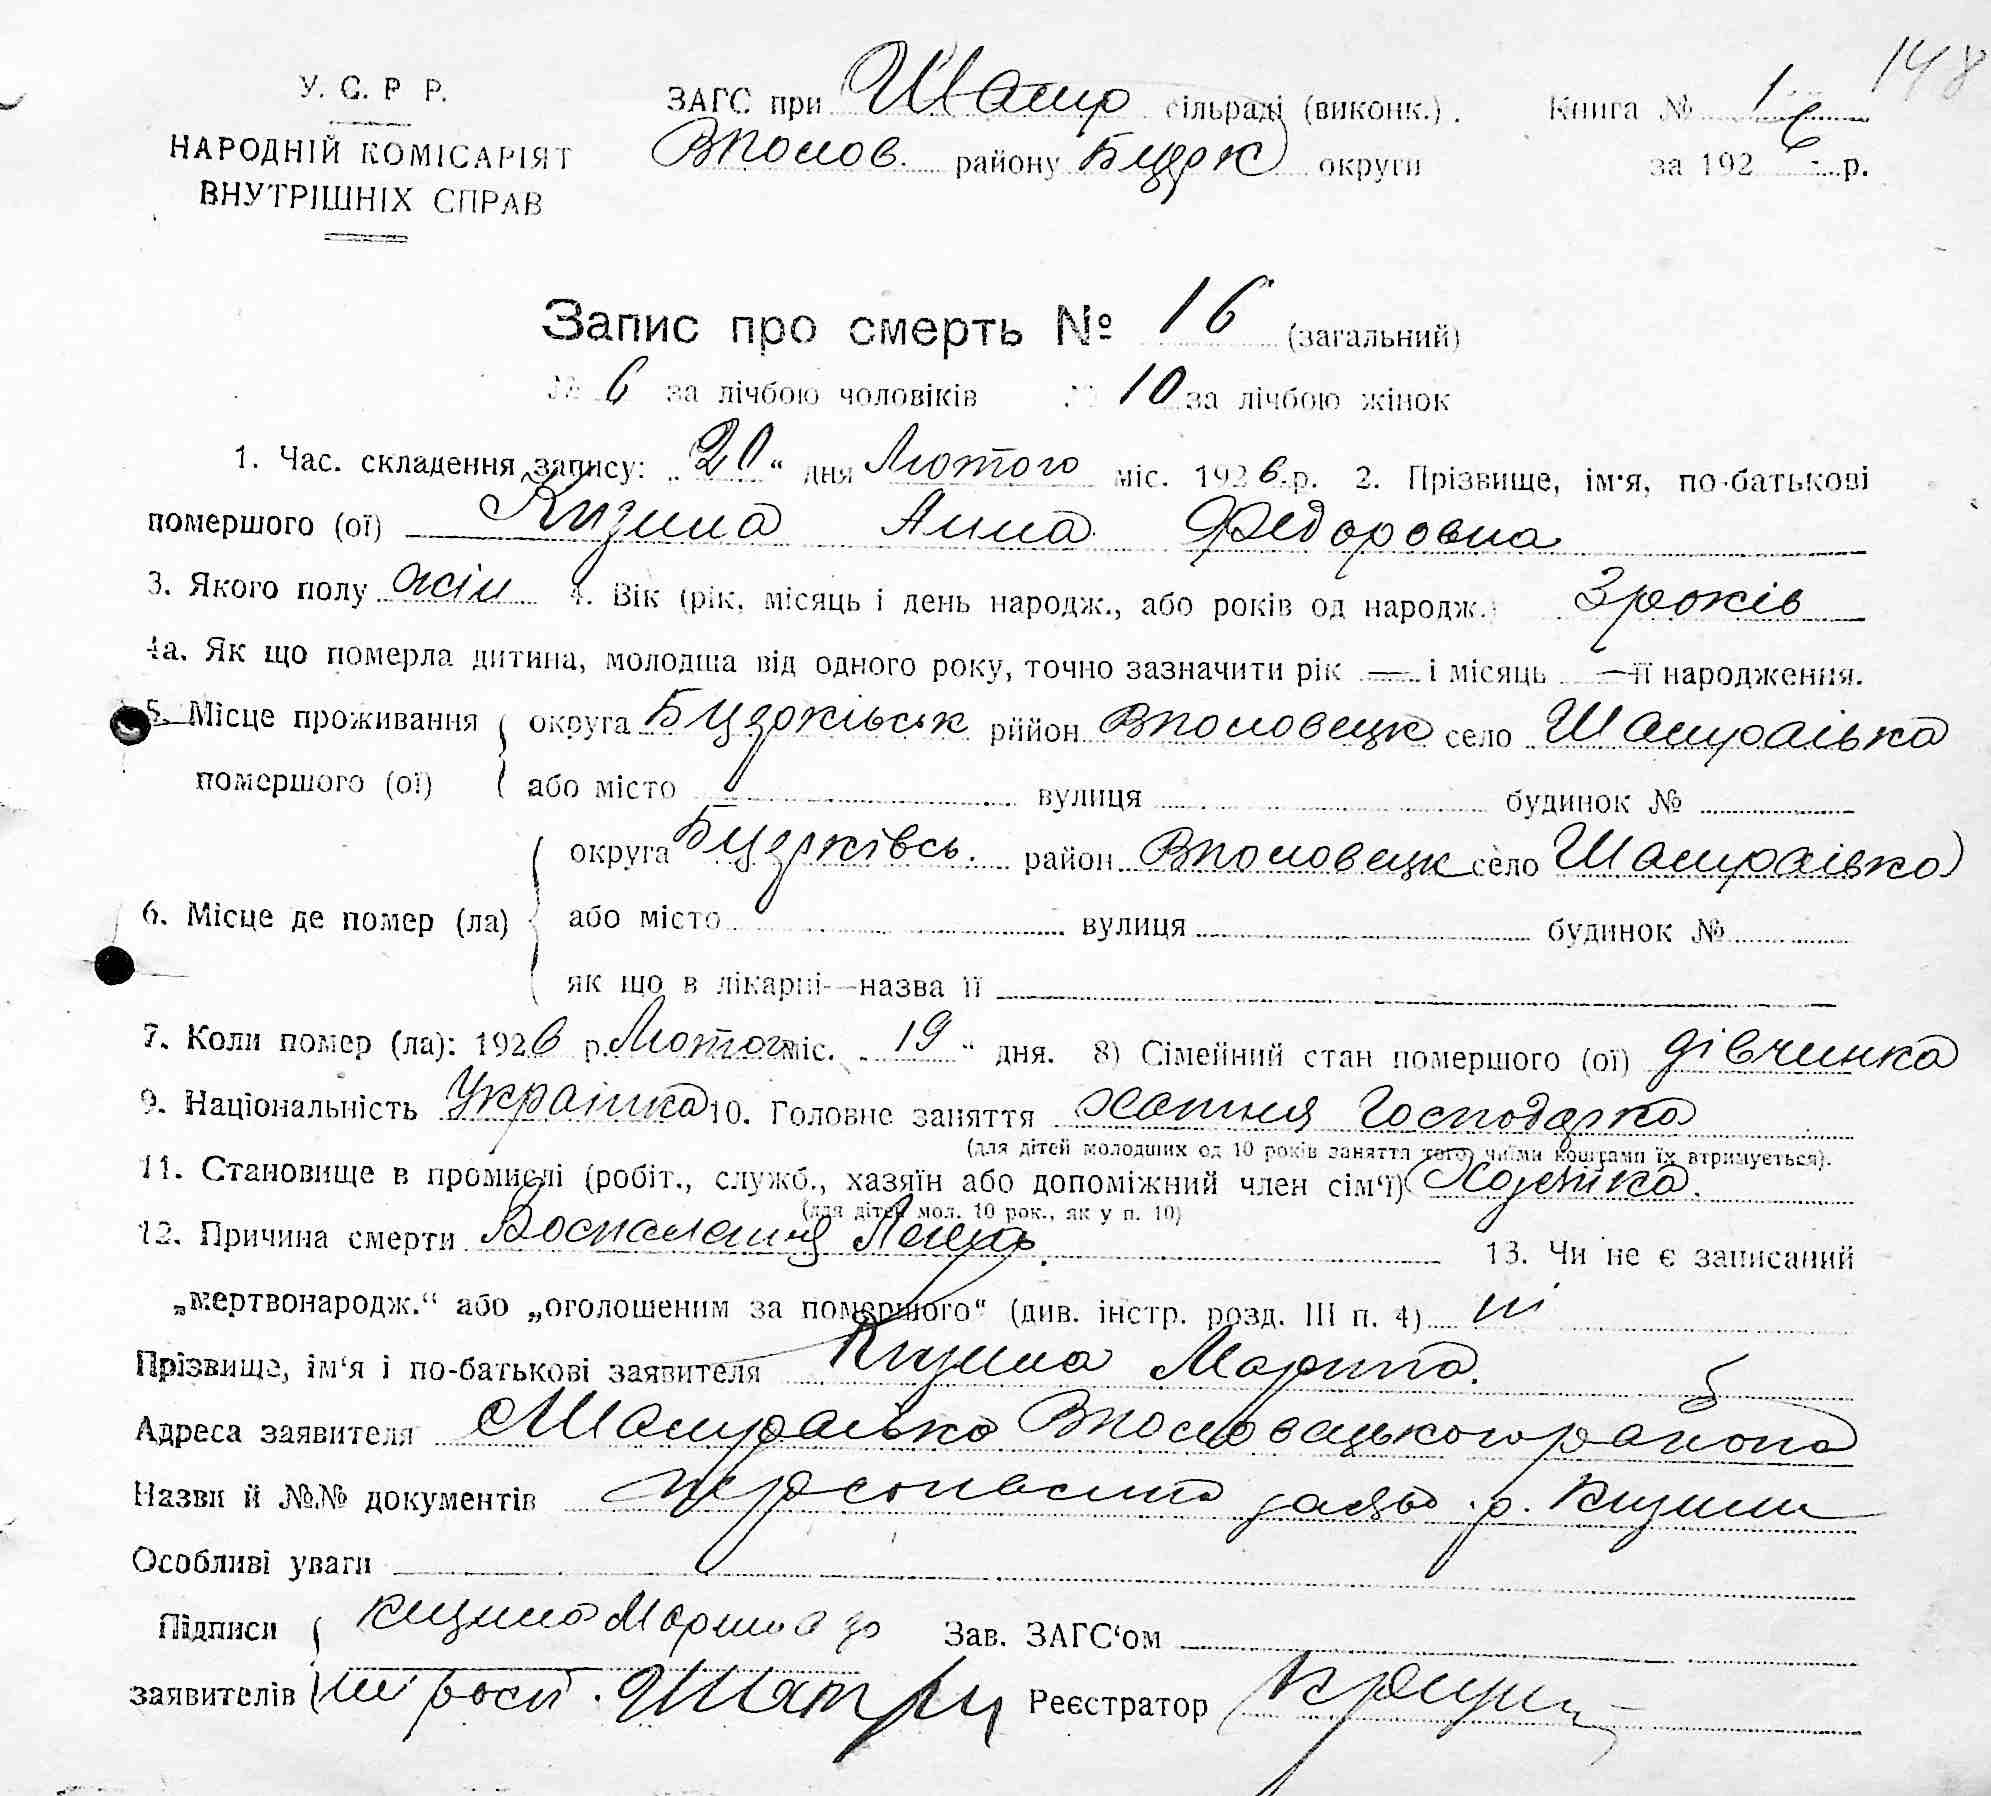 148
У. С. Р. Р.
НАРОДНІЙ КОМІСАРІЯТ
ВНУТРІШНІХ СПРАВ
ЗАГС при Шамр сільраді (виконк.). Книга № 1
Вполов. району Бцерк округи за 1926 р.
Запис про смерть № 16 (загальний)
№ 6 за лічбою чоловіків № 10 за лічбою жінок
1. Час. складення запису: „20“ дня Лютого міс. 1926 р. 2. Прізвище, ім'я, по-батькові
помершого (ої) Кизима Анна Федоровна
3. Якого полу жін 4. Вік (рік, місяць і день народж., або років од народж.) 3 років
4а. Як що померла дитина, молодша від одного року, точно зазначити рік — і місяць — її народження.
5. Місце проживання округа Бцерківськ район Вполовецк село Шамраівка
помершого (ої) або місто вулиця будинок №
округа Бцерківсь. район Вполовецк село Шамраівка
6. Місце де помер (ла) або місто вулиця будинок №
як що в лікарні—назва її
7. Коли помер (ла): 1926 р. Лютого міс. „19“ дня. 8) Сімейний стан помершого (ої) дівчинка
9. Національність Украінка 10. Головне заняття хатня Господарка
(для дітей молодших од 10 років заняття того, чиїми коштами їх втримується).
11. Становище в промислі (робіт., служб., хазяїн або допоміжний член сім'ї) Хозяіка.
(для дітей мол. 10 рок., як у п. 10)
12. Причина смерти Воспаления Легкь. 13. Чи не є записаний
„мертвонародж.“ або „оголошеним за помершого“ (див. інстр. розд. III п. 4) ні
Прізвище, ім'я і по-батькові заявителя Кизима Марина.
Адреса заявителя с Шамраівка Вполовецького района
Назви й №№ документів р. Кизими
Особливі уваги
Підписи Кизима Марина за
заявителів Зав. ЗАГС'ом
Реєстратор